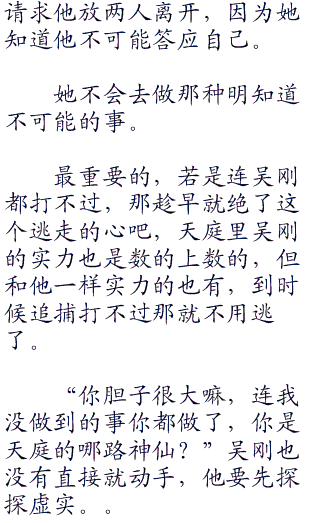 请求他放两人离开，因为她
知道他不可能答应自己。
她不会去做那种明知道
不可能的事。
最重要的，若是连吴刚
都打不过，那趁早就绝了这
个逃走的心吧，天庭里吴刚
的实力也是数的上数的，但
和他一样实力的也有，到时
候追捕打不过那就不用逃
了。
“你胆子很大嘛，连我
没做到的事你都做了，你是
天庭的哪路神仙？”吴刚也
没有直接就动手，他要先探
探虚实。。